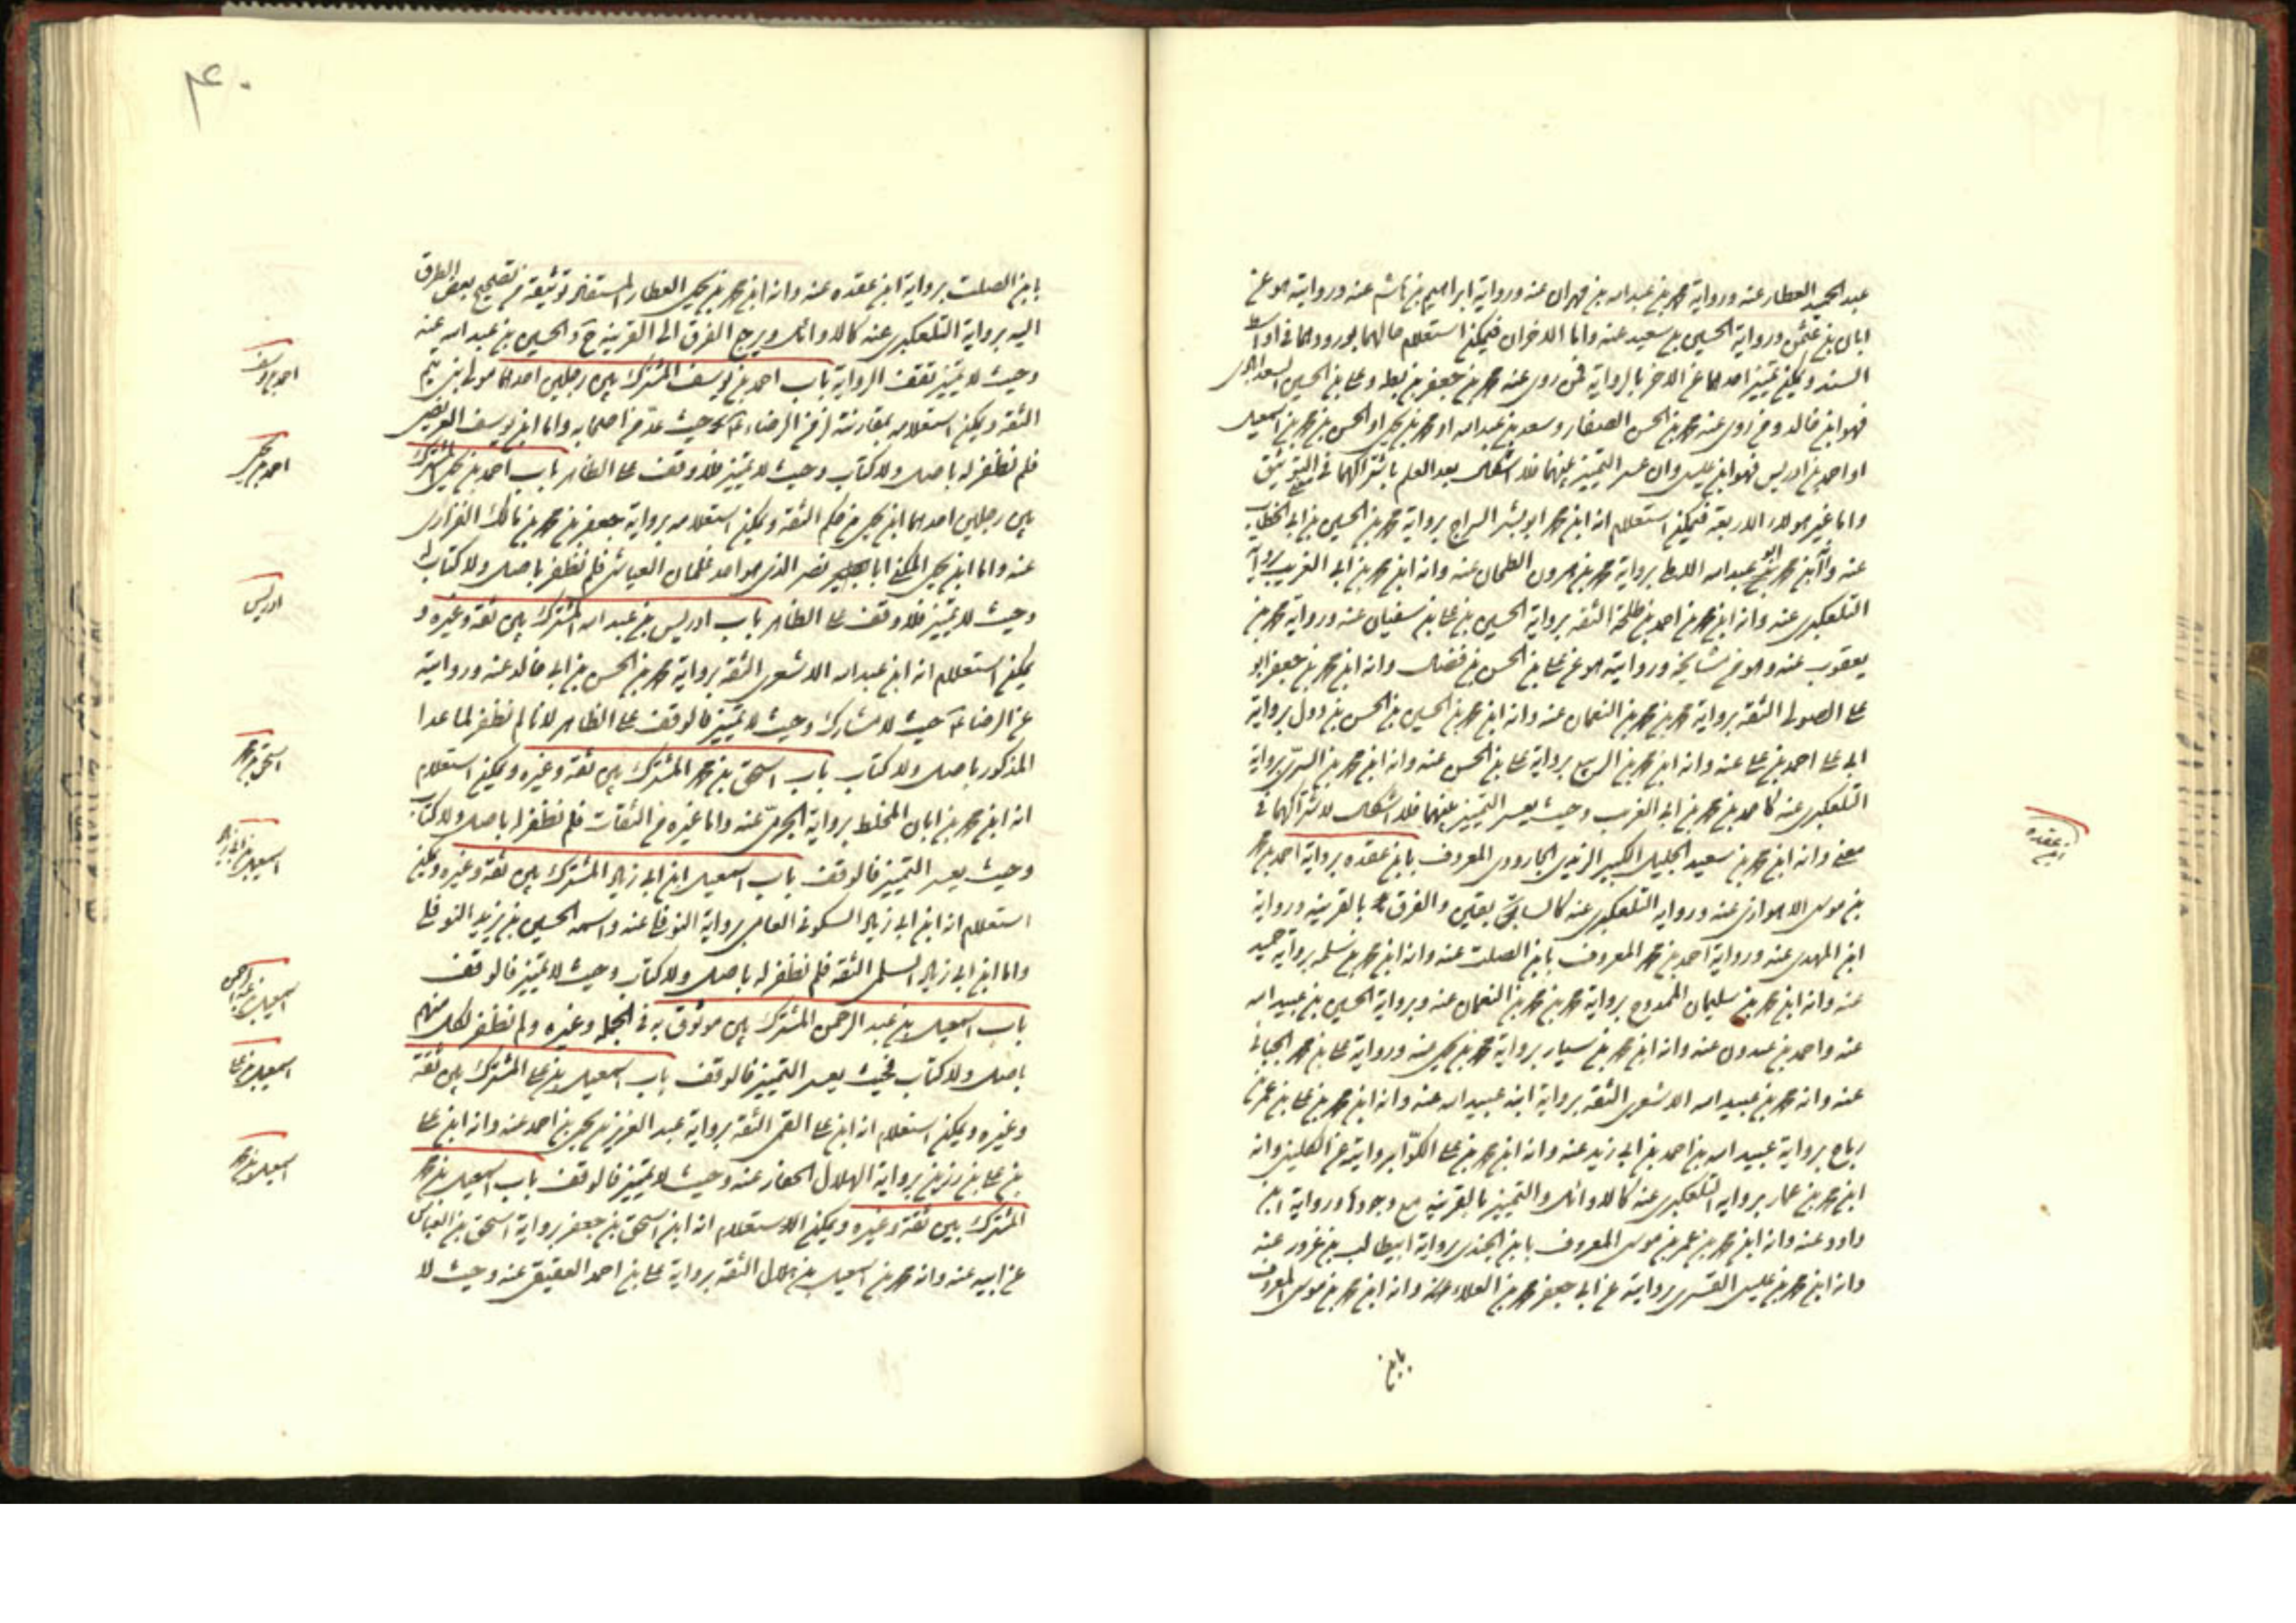 عبد الحميد العطار عنه ورواية محمد بن عبد الله بن مهران عنه ورواية ابراهيم بن هاشم عنه وروايته هو عن
ابان بن عثمن ورواية الحسين بن سعيد عنه واما الاخران فيمكن استعلام حالهما بورودهما في اواسط
السند ويمكن تمييز احدهما عن الاخر بالرواية فمن روى عنه محمد بن جعفر بن بطه وعلى بن الحسين السعد ابادى
فهو ابن خالد ومن روى عنه محمد بن الحسن الصفار وسعد بن عبد الله او محمد بن يحيى او الحسن بن محمد بن اسمعيل
او احمد بن ادريس فهو ابن عيسى وان عسر التمييز بينهما فلا اشكال بعد العلم باشتراكهما في التوثيق
واما غير هولاء الاربعة فيمكن استعلام انه ابن محمد ابو بشر السراج برواية محمد بن الحسين بن ابى الخطاب
عنه وانه ابن محمد ابو عبد الله برواية محمد بن هرون الطحان عنه وانه ابن محمد بن ابى الغريب برواية
التلعكبرى عنه وانه ابن محمد بن احمد بن طلحة الثقه برواية الحسين بن على بن سفيان عنه ورواية محمد بن
يعقوب عنه وهو من مشايخه وروايته هو عن على بن الحسن بن فضال وانه ابن محمد بن جعفر ابو
على الصولى الثقه برواية محمد بن محمد بن النعمان عنه وانه ابن محمد بن الحسين بن الحسن بن دول برواية
ابى على احمد بن على عنه وانه ابن محمد بن الربيع برواية على بن الحسن عنه وانه ابن محمد بن السرى برواية
التلعكبرى عنه كاحمد بن محمد بن ابى الغريب وحيث يعسر التمييز بينهما فلا اشكال لاشتراكهما في
معنى وانه ابن محمد بن سعيد الجليل الكبير الزيدى الجارودى المعروف بابن عقده برواية احمد بن محمد
بن موسى الاهوازى عنه ورواية التلعكبرى عنه كالسابق بقين والفرق بالقرينه ورواية
ابن المهدى عنه ورواية احمد بن محمد المعروف بابن الصلت عنه وانه ابن محمد بن سلمه برواية حميد
عنه وانه ابن محمد بن سليمان الممدوح برواية محمد بن محمد بن النعمان عنه وبرواية الحسين بن عبيد الله
عنه واحمد بن عبدون عنه وانه ابن محمد بن سيار برواية محمد بن يحيى عنه ورواية على بن محمد الجبائى
عنه وانه محمد بن عبيد الله الاشعرى الثقه برواية ابنه عبيد الله عنه وانه ابن محمد بن على بن عمر بن
رباح برواية عبيد الله بن احمد بن ابى زيد عنه وانه ابن محمد بن على الكوفى بروايته عن الكلينى وانه
ابن محمد بن عمار برواية التلعكبرى عنه كالاوائل والتمييز بالقرينه مع وجودها ورواية ابن
داود عنه وانه ابن محمد بن عمر بن موسى المعروف بابن الجندى برواية ابيطالب بن غرور عنه
وانه ابن محمد بن عيسى القسرى بروايته عن ابى جعفر محمد بن العلاء وانه ابن محمد بن موسى المعروف
بابن
ابن عقده
۴۰
بابن الصلت برواية ابن عقده عنه وانه ابن محمد بن يحيى العطار المستفاد توثيقه من تصحيح بعض الطرق
اليه برواية التلعكبرى عنه كالاوائل ويرجع الفرق الى القرينة ح والحسين بن عبيد الله عنه
وحيث لا تمييز تقف الرواية باب احمد بن يوسف المشترك بين رجلين احدهما مولى بنى تيم
الثقه ويمكن استعلامه بمقارنته لزمن الرضاء ع حيث عد من اصحابه واما ابن يوسف العريضى
فلم نظفر له باصل ولا كتاب وحيث لا تمييز فلا وقف على الظاهر باب احمد بن يحيى المشترك
بين رجلين احدهما ابن يحيى بن حكم الثقة ويمكن استعلامه برواية جعفر بن محمد بن مالك الفزارى
عنه واما ابن يحيى المكنى ابا نصر الذى هو احد غلمان العياشى فلم نظفر باصل ولا كتاب له
وحيث لا تمييز فلا وقف على الظاهر باب ادريس بن عبد الله المشترك بين ثقه وغيره و
يمكن استعلام انه ابن عبد الله الاشعرى الثقه برواية محمد بن الحسن بن ابى خالد عنه وروايته
عن الرضاء ع حيث لا مشارك وحيث لا تمييز فالوقف على الظاهر لانا لم نظفر لما عدا
المذكور باصل ولا كتاب باب اسحق بن محمد المشترك بين ثقه وغيره ويمكن استعلام
انه ابن محمد بن ابان المخلط برواية الجرمى عنه واما غيره من الثقات فلم نظفر له باصل ولا كتاب
وحيث يعسر التمييز فالوقف باب اسمعيل ابن ابى زياد المشترك بين ثقه وغيره ويمكن
استعلام انه ابن ابى زياد السكونى العامى برواية النوفلى عنه واسمه الحسين بن يزيد النوفلى
واما ابن ابى زياد السلمى الثقه فلم نظفر له باصل ولا كتاب وحيث لا تمييز فالوقف
باب اسمعيل بن عبد الرحمن المشترك بين موثوق به في الجمله وغيره ولم نظفر لكل منهم
باصل ولا كتاب فحيث يعسر التمييز فالوقف باب اسمعيل بن على المشترك بين ثقة
وغيره ويمكن استعلام انه ابن على القمى الثقه برواية عبد العزيز بن يحيى بن احمد عنه وانه ابن على
بن على بن رزين برواية الهلال الحفار عنه وحيث لا تمييز فالوقف باب اسمعيل بن محمد
المشترك بين ثقة وغيره ويمكن الاستعلام انه ابن اسحق بن جعفر برواية اسحق بن العباس
عن ابيه عنه وانه محمد بن اسمعيل بن هلال الثقه برواية على بن احمد العقيقى عنه وحيث لا
احمد بن يوسف
احمد بن يحيى
ادريس
اسحق بن محمد
اسمعيل بن ابى زياد
اسمعيل بن عبد الرحمن
اسمعيل بن على
اسمعيل بن محمد